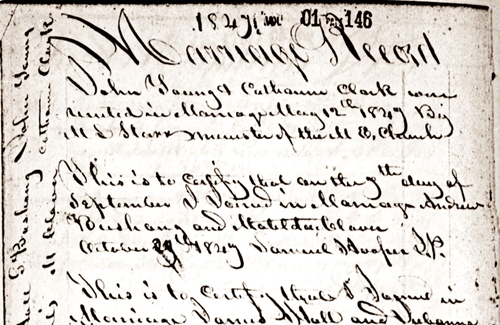 1847 01 146
Marriage Record
John Young & Catharine Clark were
united in Marriage May 12th 1847 By
M L Starr minister of the M E Church
This is to certify that on the 9th day of
September I Joined in Marriage Andrew
Bushang and Matilda Clover
October 1847 Samuel Hooper J.P.
This is to Certify that I Joined in
Marriage James Hall and
John Young
Catharine Clark
Bushang
M Clover
Hall